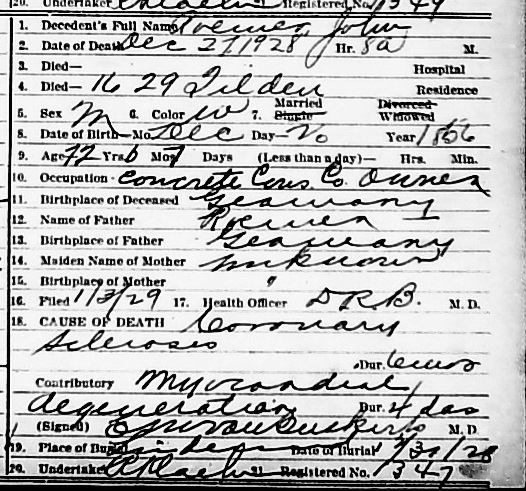 20. Undertaker 21 Registered No. 1349
1. Decedent's Full Name Roemer John
2. Date of Death Dec 27 1928 Hr. 8a M.
3. Died— Hospital
4. Died— 1629 Tilden Residence
5. Sex M 6. Color W 7. Married Single Divorced Widowed
8. Date of Birth—Mo. Dec Day— 20 Year 1856
9. Age 72 Yrs. 6 Mo. 7 Days (Less than a day)— Hrs. Min.
10. Occupation Concrete Cons. Co. Owner
11. Birthplace of Deceased Germany
12. Name of Father Roemer
13. Birthplace of Father Germany
14. Maiden Name of Mother unknown
15. Birthplace of Mother "
16. Filed 1/3/29 17. Health Officer D.R.B. M. D.
18. CAUSE OF DEATH Coronary
Sclerosis
Dur. 6 mos
Contributory Myocardial
degeneration Dur. 4 das
(Signed) M. D.
19. Place of Burial Linden Date of Burial 12/30/28
20. Undertaker 21 Registered No. 1347